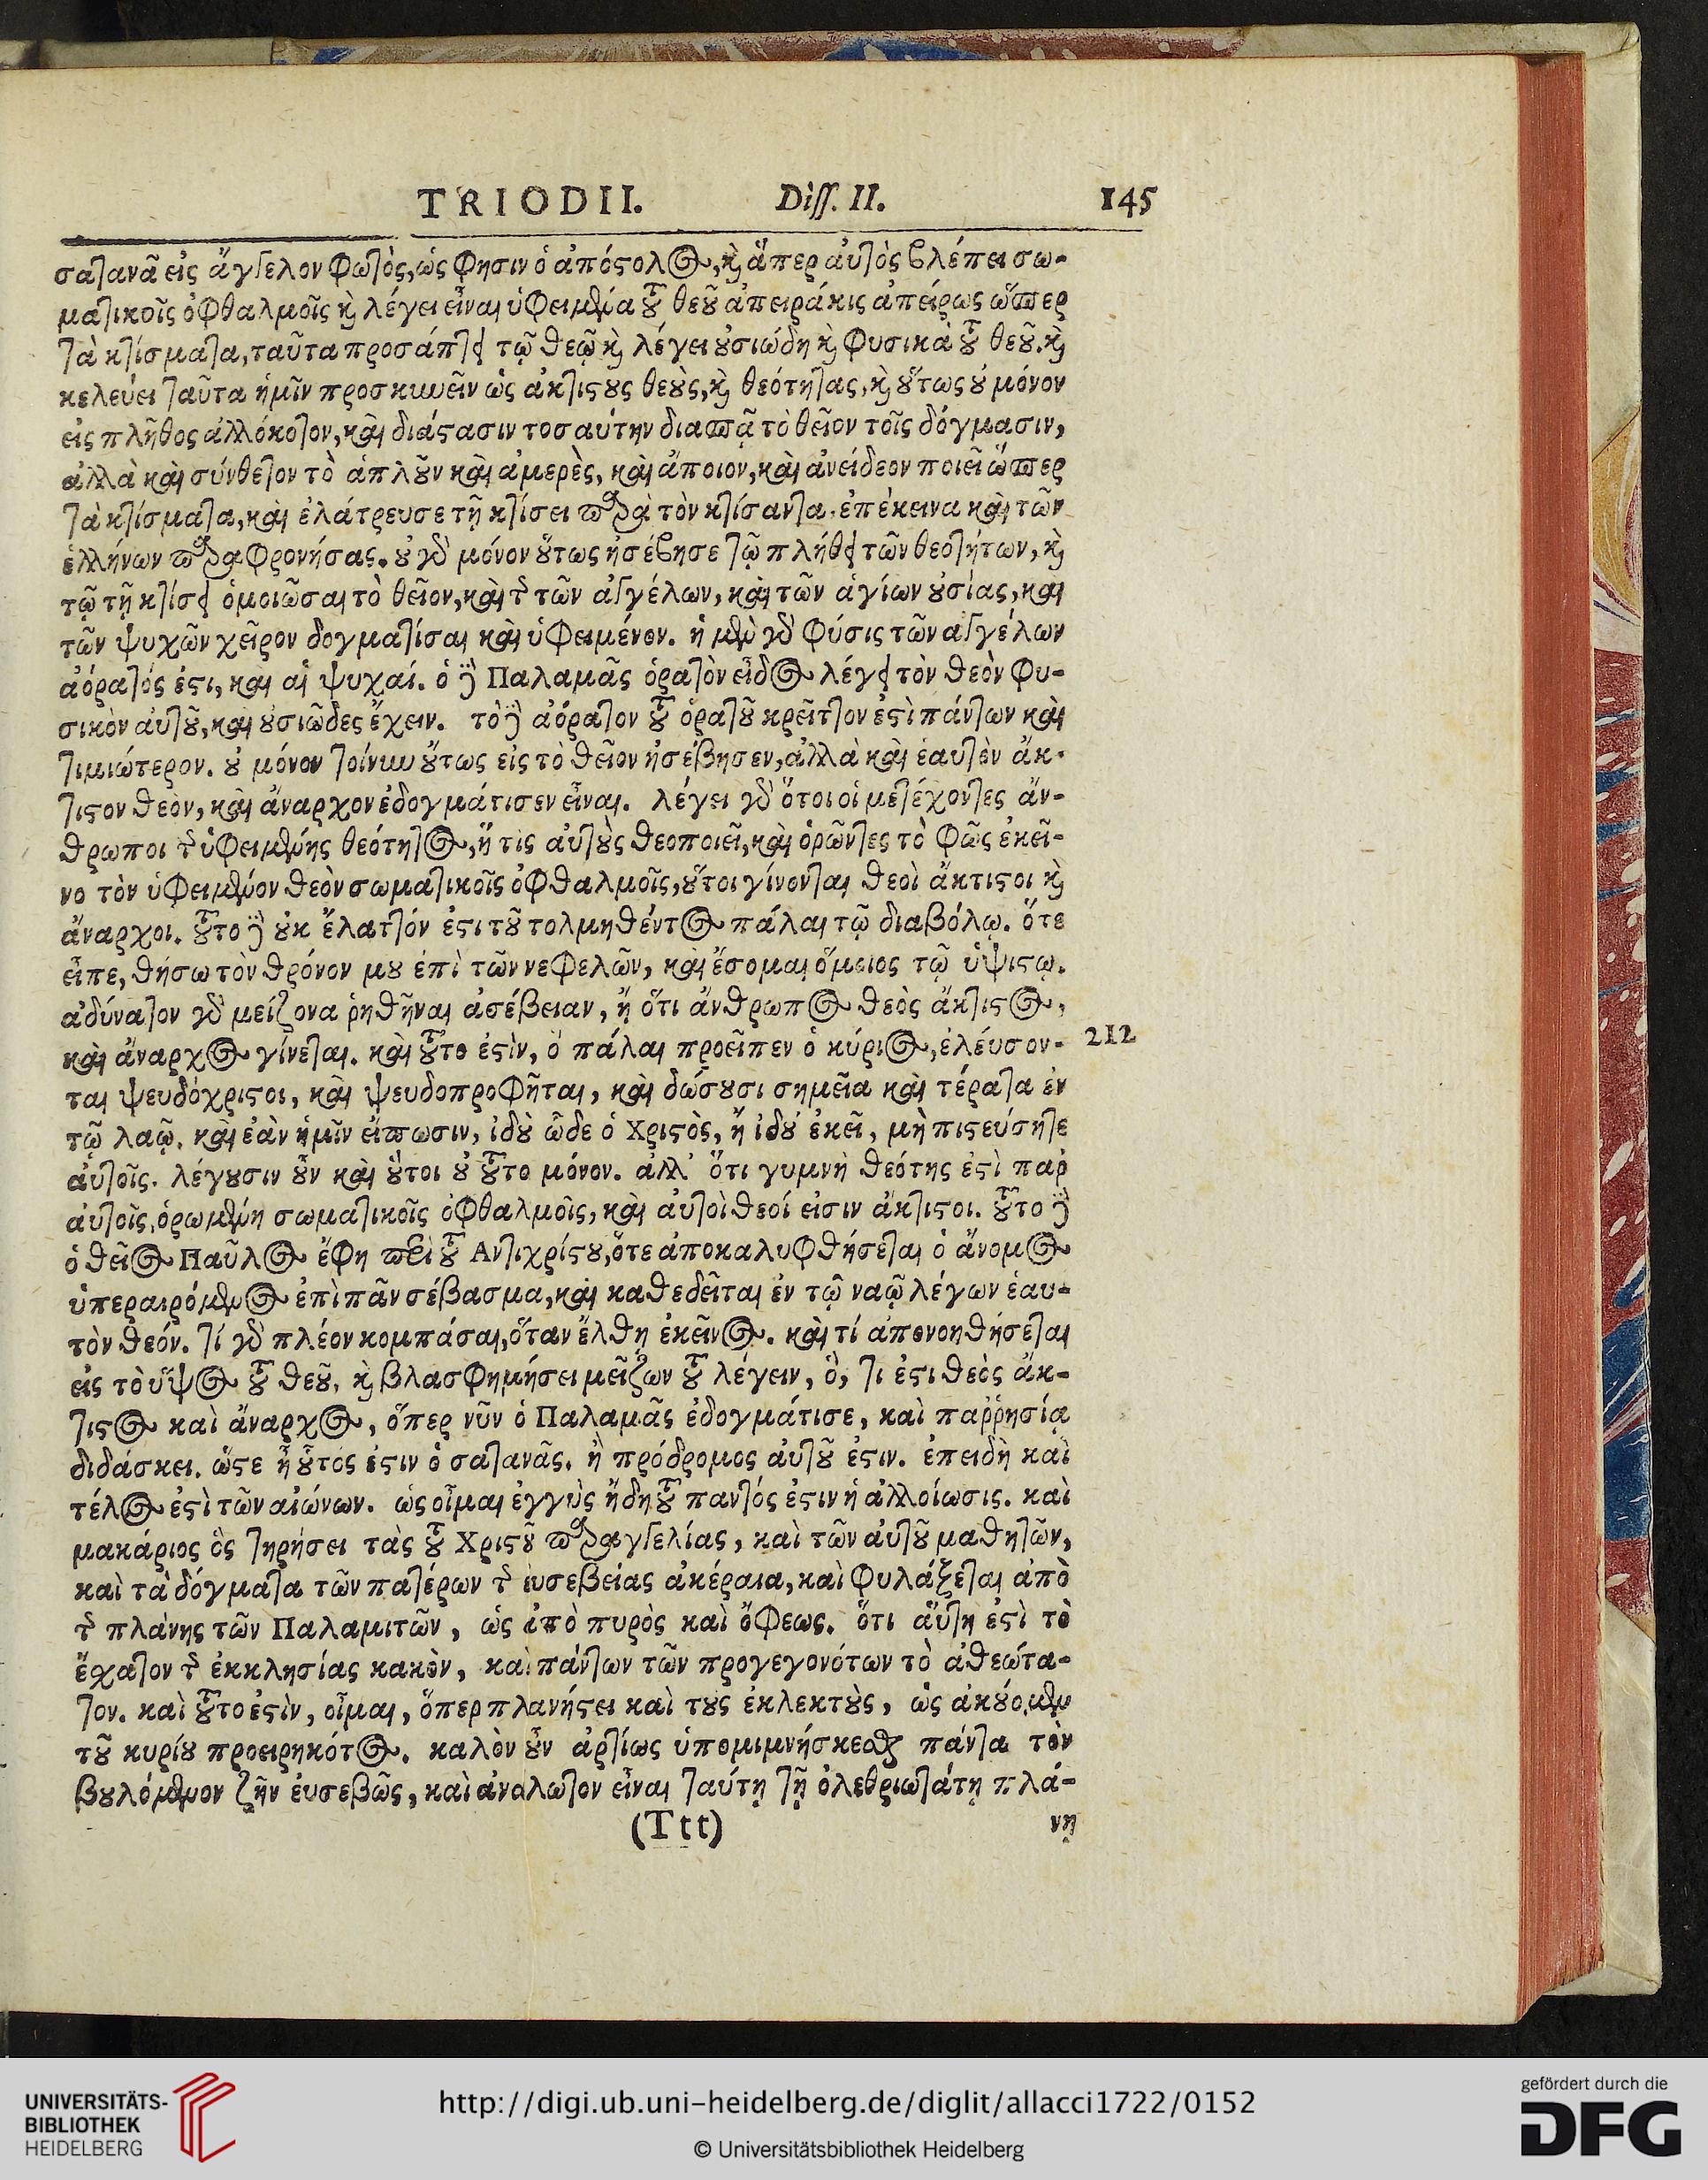 TRIODII. Diss. II. 145
σατανᾶ εἰς ἄγγελον φωτὸς, ὡς φησιν ὁ ἀπόςολος, καὶ ἅπερ αὐτὸς βλέπει σω-
ματικοῖς ὀφθαλμοῖς καὶ λέγει εἶναι ὑφειμένα τοῦ θεοῦ ἀπειράκις ἀπείρως ὥσπερ
τὰ κτίσματα, ταῦτα προσάπτει τῷ θεῷ καὶ λέγει οὐσιώδη καὶ φυσικὰ τοῦ θεοῦ. καὶ
κελεύει ταῦτα ἡμῖν προσκυνεῖν ὡς ἀκτίςους θεοὺς, καὶ θεότητας, καὶ οὕτως οὐ μόνον
εἰς πλῆθος ἀλλόκοτον, καὶ διάςασιν τοσαύτην διασπᾷ τὸ θεῖον τοῖς δόγμασιν,
ἀλλὰ καὶ σύνθετον τὸ ἁπλοῦν καὶ ἀμερὲς, καὶ ἄποιον, καὶ ἀνείδεον ποιεῖ ὥσπερ
τὰ κτίσματα, καὶ ἐλάτρευσε τῇ κτίσει παρὰ τὸν κτίσαντα. ἐπέκεινα καὶ τῶν
ἑλλήνων παραφρονήσας. οὐ γὰρ μόνον οὕτως ἠσέβησε τῷ πλήθει τῶν θεοτήτων, καὶ
τῷ τῇ κτίσει ὁμοιῶσαι τὸ θεῖον, καὶ τῆς τῶν ἀγγέλων, καὶ τῶν ἁγίων οὐσίας, και
τῶν ψυχῶν χεῖρον δογματίσαι καὶ ὑφειμένον. ἡ μὲν γὰρ φύσις τῶν ἀγγέλων
ἀόρατός ἐςι, και αἱ ψυχαί. ὁ δὲ Παλαμᾶς ὁρατὸν εἶδος λέγει τὸν θεὸν φυ-
σικὸν αὐτοῦ, και οὐσιῶδες ἔχειν. τὸ δὲ ἀόρατον τοῦ ὁρατοῦ κρεῖττον ἐςὶ πάντων καὶ
τιμιώτερον. οὐ μόνον τοίνυν οὕτως εἰς τὸ θεῖον ἠσέβησεν, ἀλλὰ καὶ ἑαυτὸν ἄκ-
τιςον θεὸν, καὶ ἄναρχον ἐδογμάτισεν εἶναι. λέγει γὰρ ὅτοι οἱ μετέχοντες ἄν-
θρωποι τῆς ὑφειμένης θεότητος, ἥ τις αὐτοὺς θεοποιεῖ, καὶ ὁρῶντες τὸ φῶς ἐκεῖ-
νο τὸν ὑφειμένον θεὸν σωματικοῖς ὀφθαλμοῖς, οὕτοι γίνονται θεοὶ ἄκτιςοι καὶ
ἄναρχοι. τοῦτο δὲ οὐκ ἔλαττόν ἐςι τοῦ τολμηθέντος πάλαι τῷ διαβόλῳ. ὅτε
εἶπε, θήσω τὸν θρόνον μου ἐπὶ τῶν νεφελῶν, καὶ ἔσομαι ὅμοιος τῷ ὑψίςῳ.
ἀδύνατον γὰρ μείζονα ῥηθῆναι ἀσέβειαν, ἢ ὅτι ἄνθρωπος θεὸς ἄκτιςος,
καὶ ἄναρχος γίνεται. καὶ τοῦτο ἐςὶν, ὃ πάλαι προεῖπεν ὁ κύριος, ἐλεύσον- 212
ται ψευδόχριςοι, καὶ ψευδοπροφῆται, καὶ δώσουσι σημεῖα καὶ τέρατα ἐν
τῷ λαῷ. καὶ ἐὰν ἡμῖν εἴπωσιν, ἰδοὺ ὧδε ὁ Χριςὸς, ἢ ἰδού ἐκεῖ, μὴ πιςεύσητε
αὐτοῖς. λέγουσιν οὖν καὶ οὕτοι οὐ τοῦτο μόνον. ἀλλ' ὅτι γυμνὴ θεότης ἐςὶ παρ'
αὐτοῖς, ὁρωμένη σωματικοῖς ὀφθαλμοῖς, καὶ αὐτοὶ θεοί εἰσιν ἄκτιςοι. τοῦτο δὲ
ὁ θεῖος Παῦλος ἔφη περὶ τοῦ Αντιχρίςου, ὅτε ἀποκαλυφθήσεται ὁ ἄνομος
ὑπεραιρόμενος ἐπὶ πᾶν σέβασμα, καὶ καθεδεῖται ἐν τῷ ναῷ λέγων ἑαυ-
τὸν θεόν. τί γὰρ πλέον κομπάσαι, ὅταν ἔλθῃ ἐκεῖνος. καὶ τί ἀπονοηθήσεται
εἰς τὸ ὕψος τοῦ θεοῦ, καὶ βλασφημήσει μεῖζων τοῦ λέγειν, ὃ, τι ἐςι θεὸς ἄκ-
τιςος καὶ ἄναρχος, ὅπερ νῦν ὁ Παλαμᾶς ἐδογμάτισε, καὶ παῤῥησίᾳ
διδάσκει. ὥςε ἢ οὗτός ἐςιν ὁ σατανᾶς. ἢ πρόδρομος αὐτοῦ ἐςιν. ἐπειδὴ καὶ
τέλος ἐςὶ τῶν αἰώνων. ὡς οἶμαι ἐγγὺς ἤδη τοῦ παντός ἐςιν ἡ ἀλλοίωσις. καὶ
μακάριος ὃς τηρήσει τὰς τοῦ Χριςοῦ παραγγελίας, καὶ τῶν αὐτοῦ μαθητῶν,
καὶ τὰ δόγματα τῶν πατέρων τῆς ἐυσεβείας ἀκέραια, καὶ φυλάξεται ἀπὸ
τῆς πλάνης τῶν Παλαμιτῶν, ὡς ἀπὸ πυρὸς καὶ ὄφεως. ὅτι αὕτη ἐςὶ τὸ
ἔχατον τῆς ἐκκλησίας κακὸν, καὶ πάντων τῶν προγεγονότων τὸ ἀθεώτα-
τον. καὶ τοῦτο ἐςὶν, οἶμαι, ὅπερ πλανήσει καὶ τους ἐκλεκτοὺς, ὡς ἀκούομεν
τοῦ κυρίου προειρηκότος. καλὸν οὖν ἀρτίως ὑπομιμνήσκεσθαι πάντα τὸν
βουλόμενον ζῆν ἐυσεβῶς, καὶ ἀνάλωτον εἶναι ταύτῃ τῇ ὀλεθριωτάτῃ πλά-
(Ttt) νῃ
UNIVERSITÄTS-
BIBLIOTHEK
HEIDELBERG
http://digi.ub.uni-heidelberg.de/diglit/allacci1722/0152
© Universitätsbibliothek Heidelberg
gefördert durch die
DFG